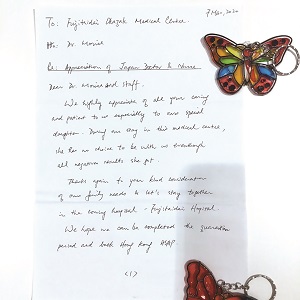 7 Mar, 2020
To: Fujitaidai Okazak Medical Centre.
Attn: Dr.
Re: Appreciation of Japan Doctor & Nurse
Dear Dr and Staff.
We highly appreciate of all your caring
and patient to us especially to our special
daughter. During our stay in this medical centre,
she has no choice to be with us eventhough
all negative results she got.
Thanks again to your kind consideration
of our family needs to let's stay together
in the coming hospital - Fujitaidai Hospital.
We hope we can be completed the quarantine
period and back Hong Kong ASAP
(1)